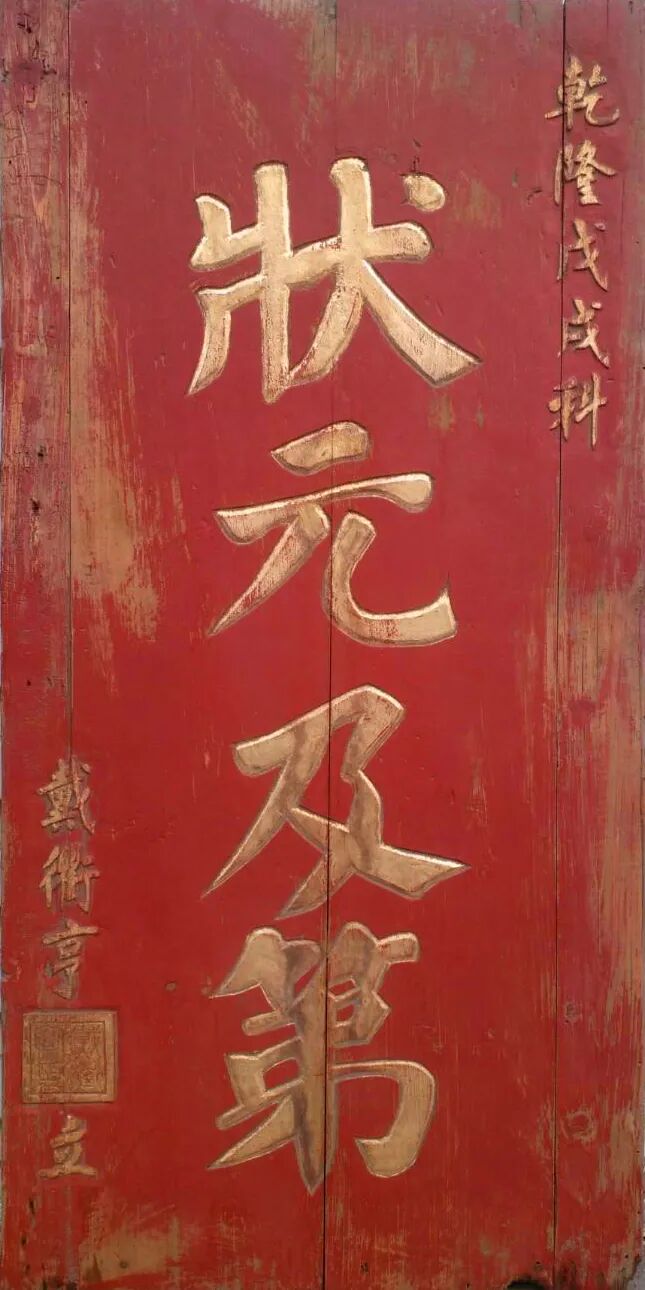 乾隆戊戌科
狀元及第
戴衢亨
立